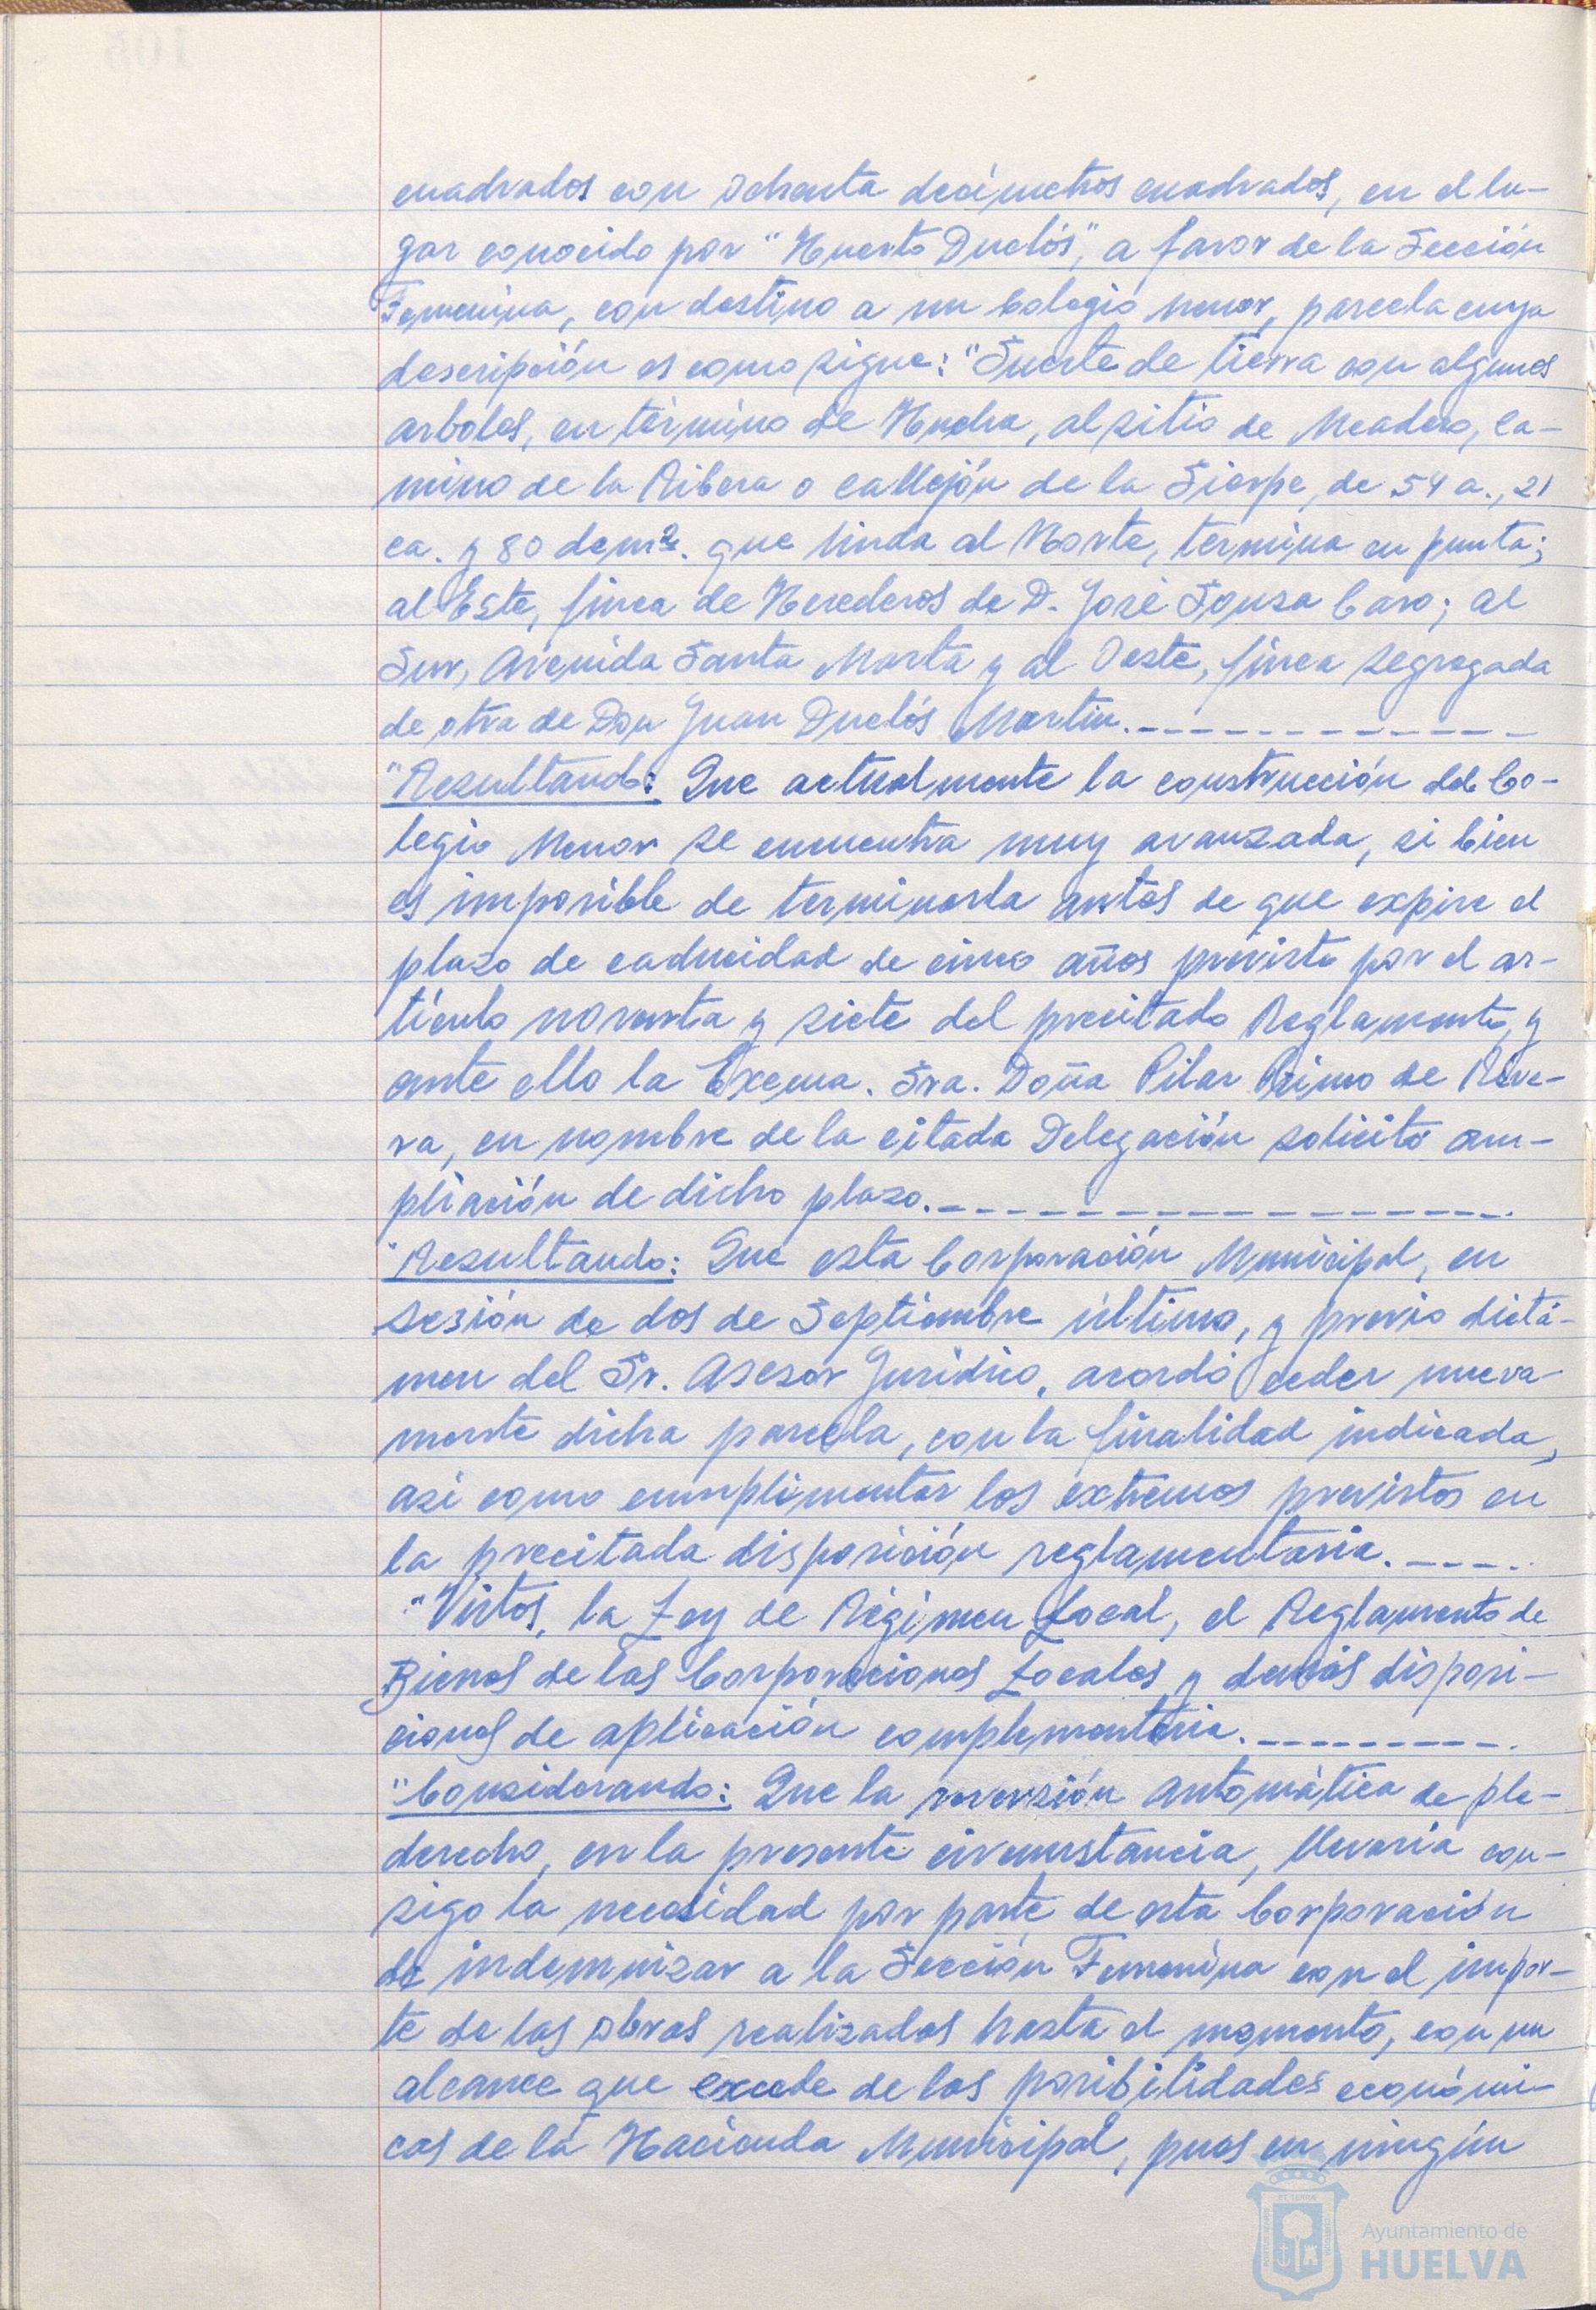 cuadrados con ochenta decímetros cuadrados, en el lu-
gar conocido por "Huerto Duclós", a favor de la Sección
Femenina, con destino a un Colegio Menor, parcela cuya
descripción es como sigue: "Suerte de tierra con algunos
arboles, en término de Huelva, al sitio de Meadero, Ca-
mino de la Ribera o callejón de la Sierpe, de 54 a., 21
ca. y 80 dcm2. que linda al Norte, termina en punta;
al Este, finca de Herederos de D. José Sousa Caro; al
Sur, Avenida Santa Marta y al Oeste, finca segregada
de otra de Don Juan Duclós Martin.
"Resultando: Que actualmente la construcción del Co-
legio Menor se encuentra muy avanzada, si bien
es imposible de terminarla antes de que expire el
plazo de caducidad de cinco años previsto por el ar-
tículo noventa y siete del precitado Reglamento, y
ante ello la Excma. Sra. Doña Pilar Primo de Rive-
ra, en nombre de la citada Delegación solicitó am-
pliación de dicho plazo.
"Resultando: Que esta Corporación Municipal, en
sesión de dos de Septiembre último, y previo dictá-
men del Sr. Asesor Jurídico, acordó ceder nueva-
mente dicha parcela, con la finalidad indicada,
asi como cumplimentar los extremos previstos en
la precitada disposición reglamentaria.
"Vistos, la Ley de Régimen Local, el Reglamento de
Bienes de las Corporaciones Locales y demás disposi-
ciones de aplicación complementaria.
"Considerando: Que la reversión automática de ple-
derecho, en la presente circunstancia, llevaria con-
sigo la necesidad por parte de esta Corporación
de indemnizar a la Sección Femenina con el impor-
te de las obras realizadas hasta el momento, con un
alcance que excede de las posibilidades económi-
cas de la Hacienda Municipal, pues en ningún
Ayuntamiento de
HUELVA